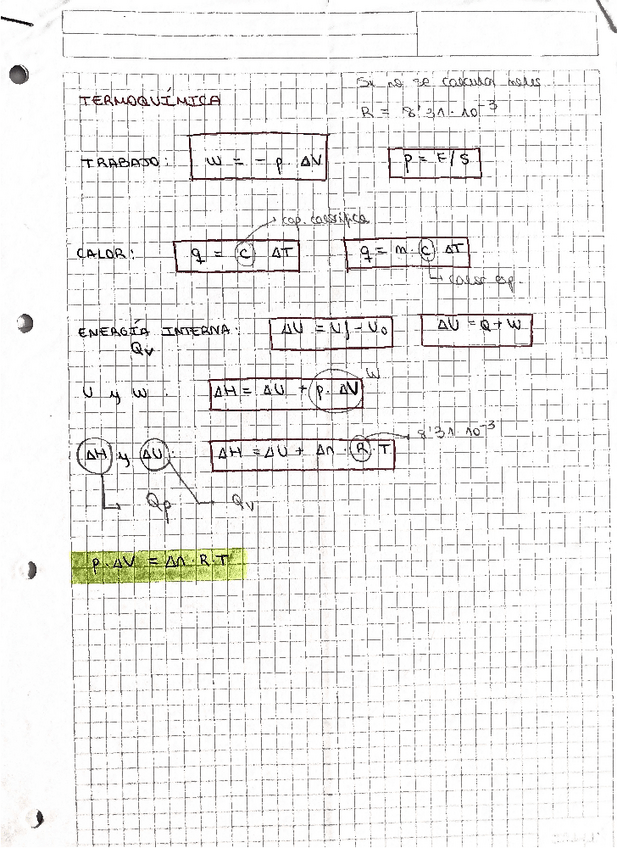 Si no se calcular moles
TERMOQUÍMICA
R = 8'31·10⁻³
TRABAJO: W = - p · ΔV p = F/S
cap. calorífica
CALOR: q = c ΔT q = m · c ΔT
calor esp.
ENERGÍA INTERNA: ΔU = Uf - U₀ ΔU = Q + W
Qv
U y W: ΔH = ΔU + p · ΔV W
ΔH y ΔU: ΔH = ΔU + Δn · R · T 8'31·10⁻³
Qp Qv
p · ΔV = Δn · R · T